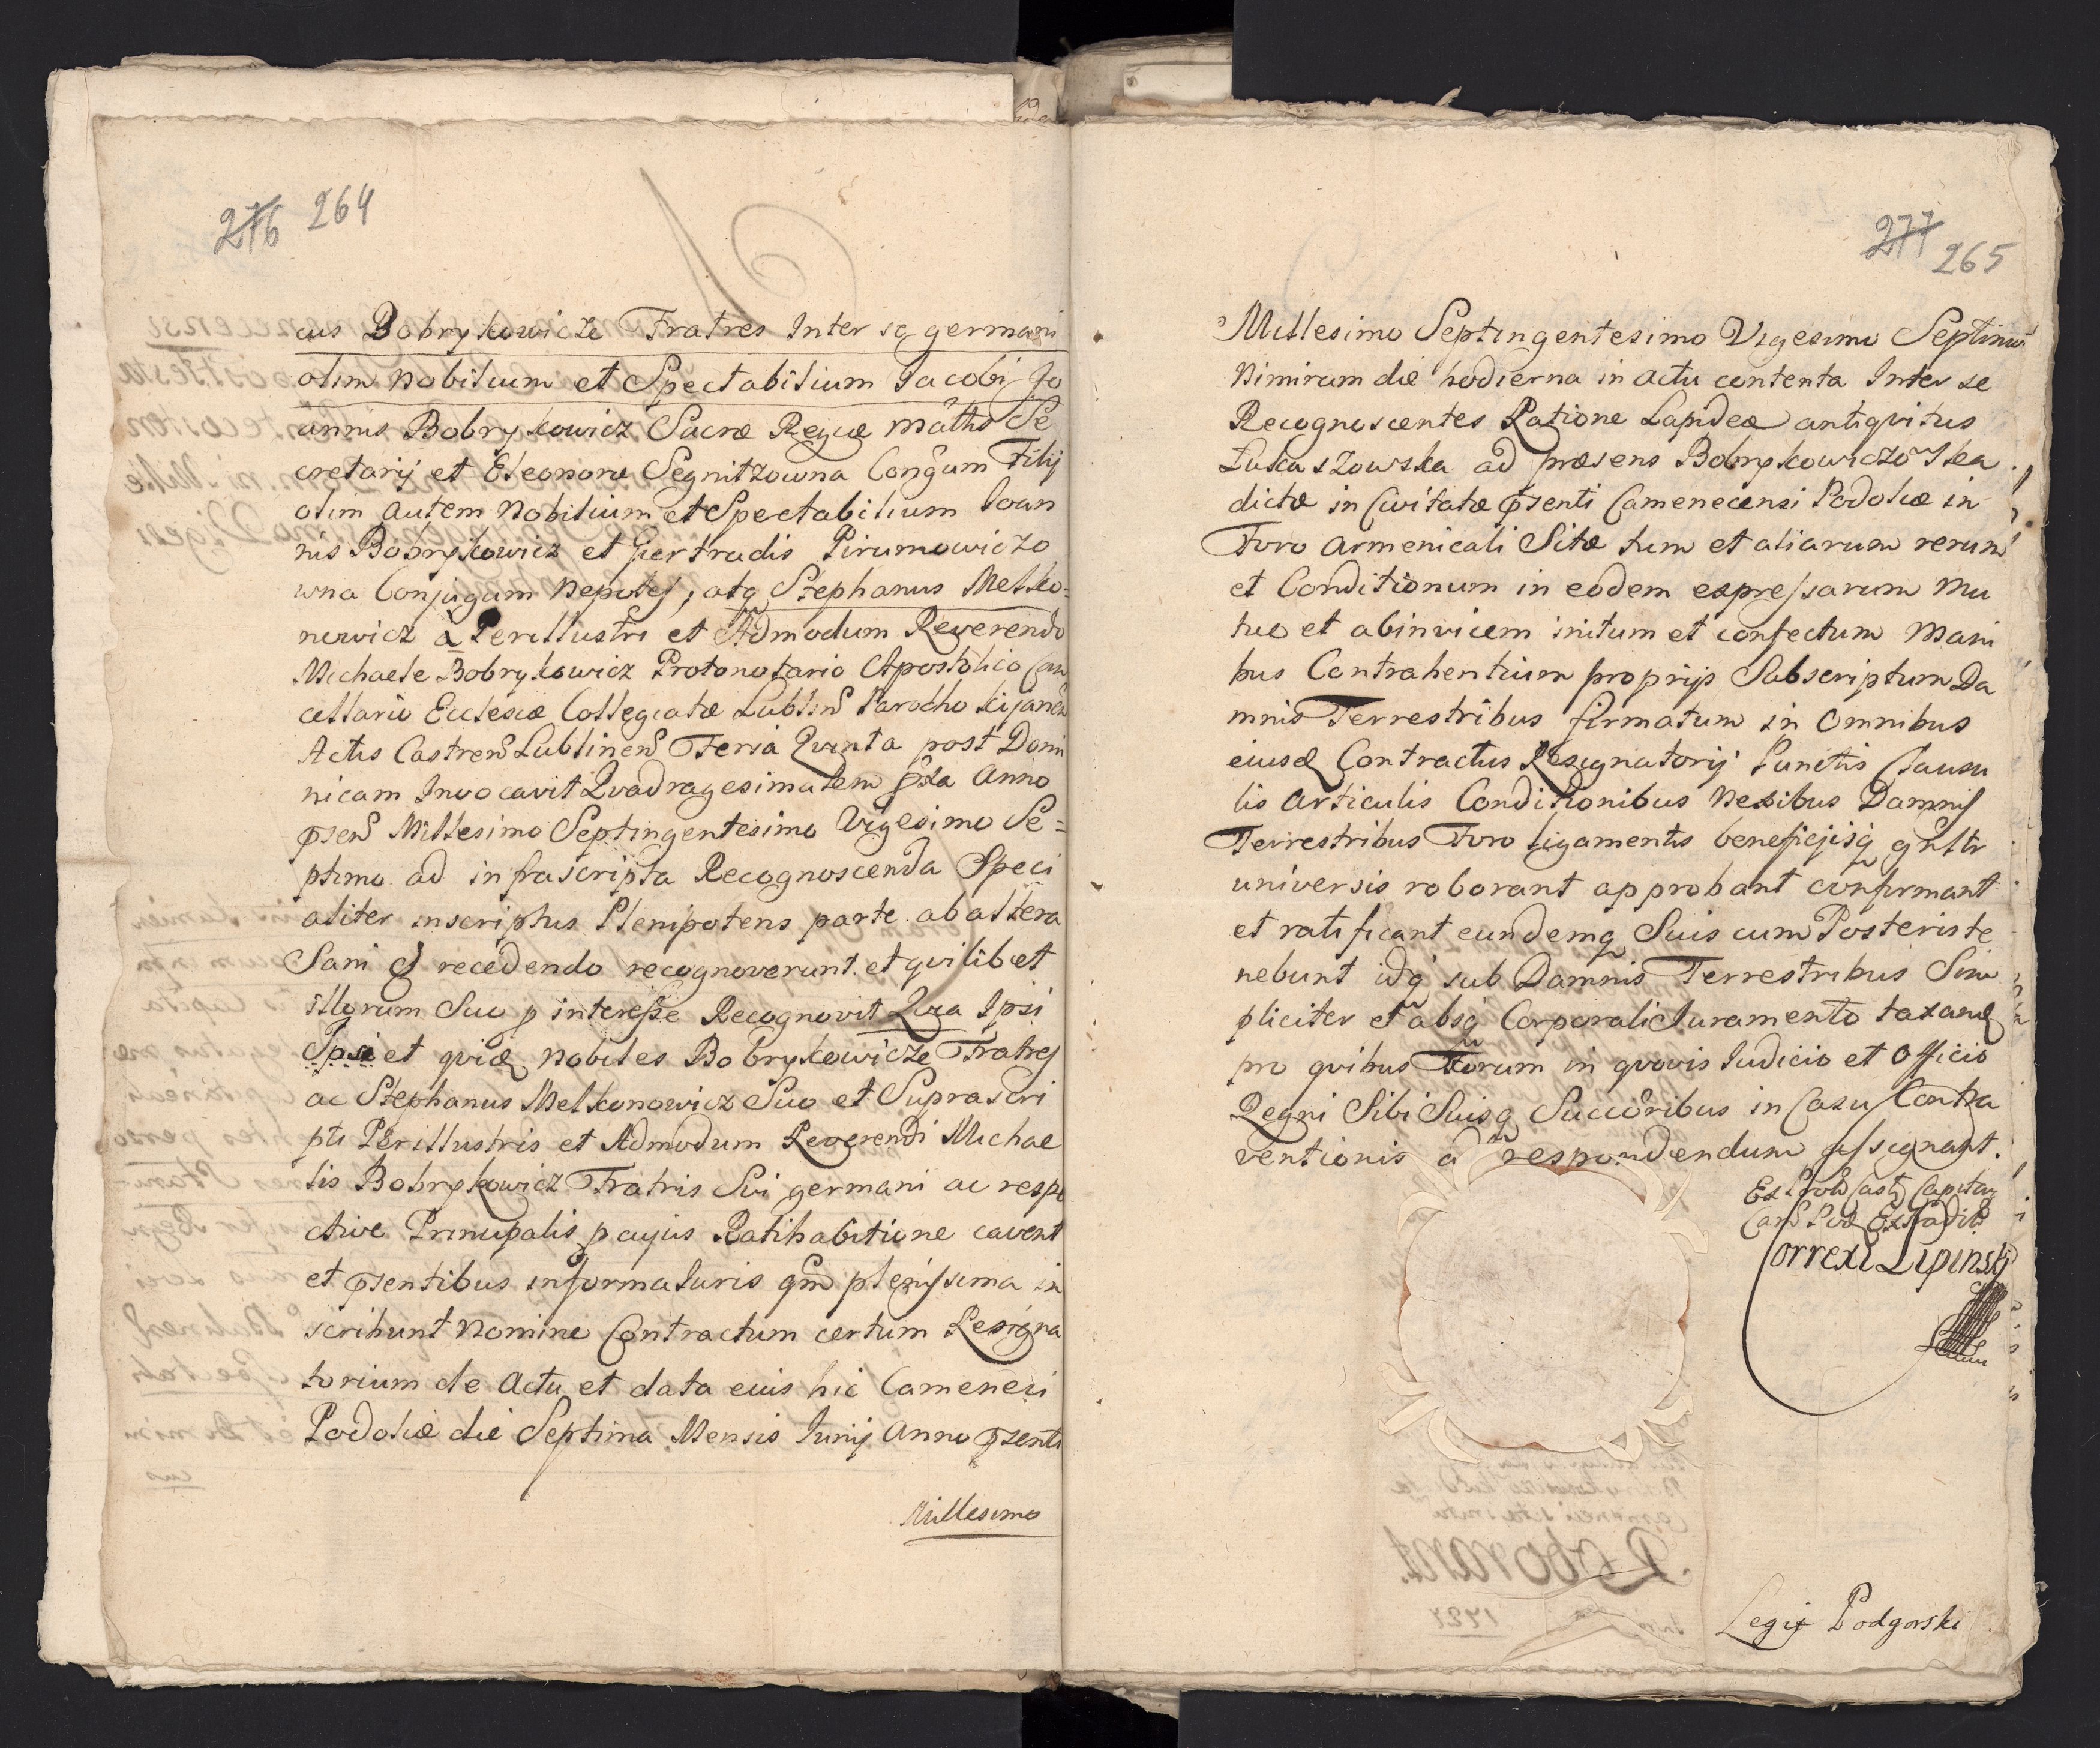 276 264
cus Bobrykowicze Fratres Inter se germani
olim Nobilium et Spectabilium Jacobi Jo
annis Bobrykowicz Sacræ Regiæ Mattis Se
cretarij et Eleonoræ Segnitzowna Congum Filij
olim autem Nobilium et Spectabilium Ioan
nis Bobrykowicz et Gertrudis Pirumowiczo
wna Conjugum Nepotes, atq Stephanus Melko=
nowicz à Perillustri et Admodum Reverendo
Michaele Bobrykowicz Protonotario Apostolico Can
cellario Ecclesiæ Collegiatæ Lublin Parocho Kijanen
Actis Castren Lublinen Feria Quinta post Domi
nicam Invocavit Quadragesimalem pxa Anno
psen Millesimo Septingentesimo Vigesimo Se=
ptimo ad infrascripta Recognoscenda Speci
aliter inscriptus Plenipotens parte ab altera
Sani & recedendo recognoverunt et quilibet
illorum Suo p interesse Recognovit Quia Ipsi
Ipsi et quid Nobiles Bobrykowicze Fratres
ac Stephanus Melkonowicz Suo et Suprascri
pti Perillustris et Admodum Reverendi Michae
lis Bobrykowicz Fratris Sui germani ac respe
ctive Principalis p cujus Ratihabitione cavent
et psentibus in forma Iuris qm plenissima in
scribunt Nomine Contractum certum Resigna
torium de Actu et data eius hic Cameneci
Podoliæ die Septima Mensis Iunij Anno psenti
Millesimo
277 265
Millesimo Septingentesimo Vigesimo Septimo
Nimirum die hodierna in actu contenta Inter se
Recognoscentes Ratione Lapideæ antiqvitus
Łukaszowska ad præsens Bobrykowiczowska
dictæ in Civitate psenti Camenecensi Podoliæ in
Foro Armenicali Sitæ tum et aliarum rerum
et Conditionum in eodem expressarum Mu
tue et abinvicem initum et confectum Mani
bus Contrahentium proprijs Subscriptum Da
mnis Terrestribus firmatum in Omnibus
eiusd Contractus Resignatorij Punctis Clausu
lis Articulis Conditionibus Nexibus Damnis
Terrestribus Foro ligamentis beneficijisq gnltr
universis roborant approbant confirmant
et ratificant eundemq Suis cum Posteris te
nebunt idq sub Damnis Terrestribus Sim
pliciter et absq Corporali Iuramento taxand
pro quibus Forum in quovis Iudicio et Officio
Regni Sibi Suisq Succoribus in Casu Contra
ventionis ad respondendum assignant.
Ex Proth Cast Capitan
Cam Pod Extradit
Correxi Lipinski
Legit Podgorski